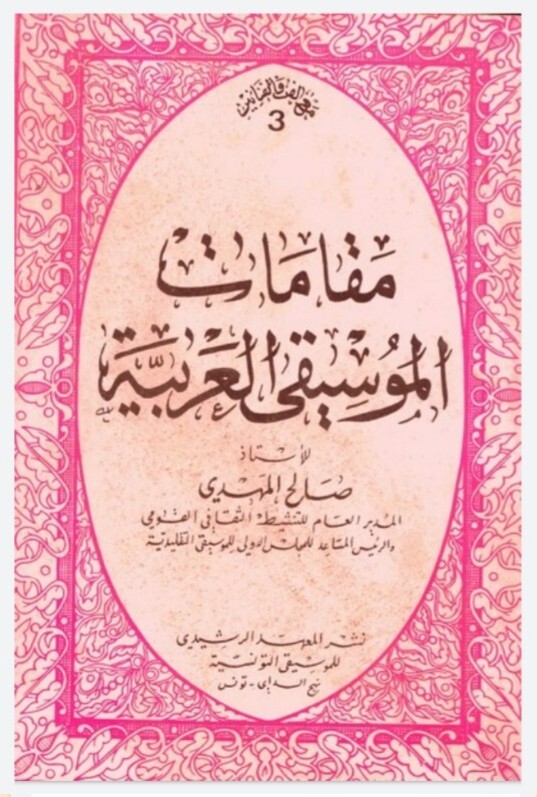 مع الفن والفنانين
3
مَقَامَات
المُوسِيقَى العَرَبيَّة
للأستاذ
صالح المهدي
المدير العام للتنشيط الثقافي القومي
والرئيس المساعد للمجلس الدولي للموسيقى التقليدية
نشر المعهد الرشيدي
للموسيقى التونسية
نهج الدباي - تونس